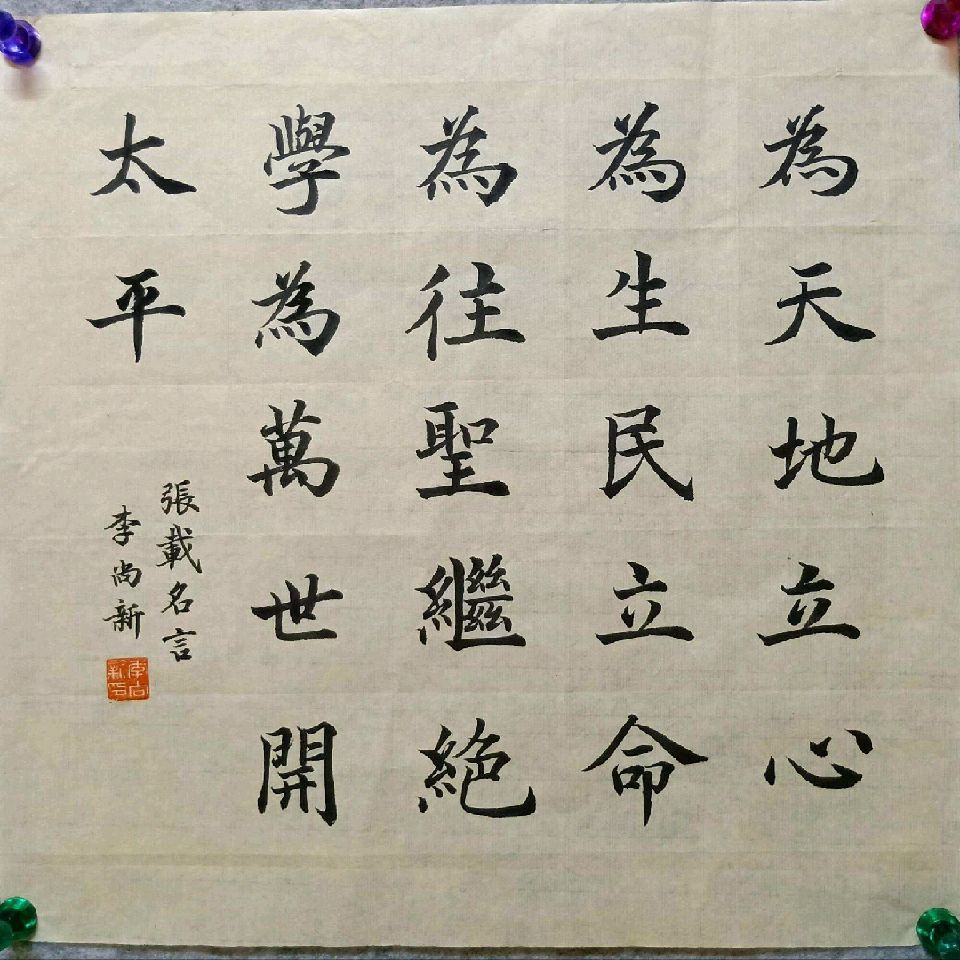 為天地立心
為生民立命
為往聖繼絕
學為萬世開
太平
張載名言
李尚新